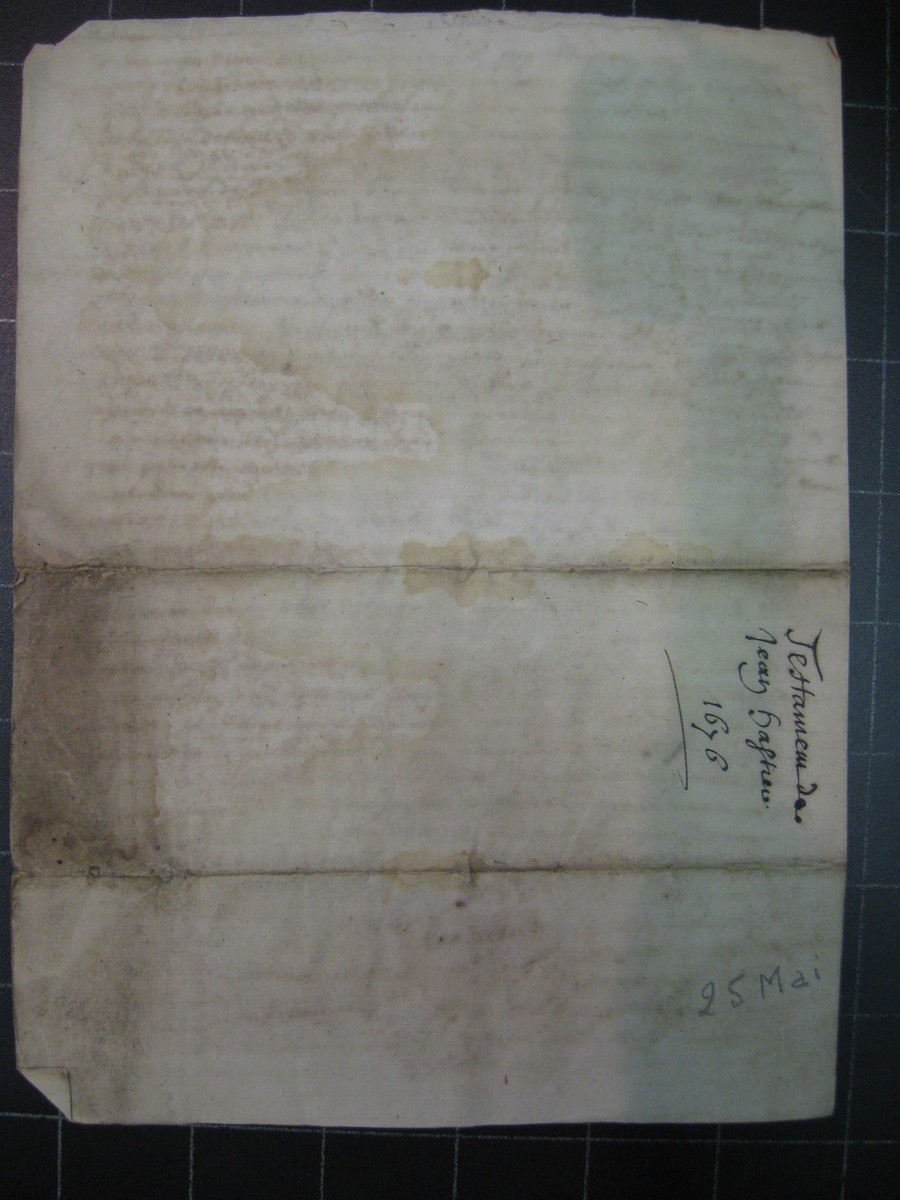 Testament de
Jean hagheu
1676
25 Mai